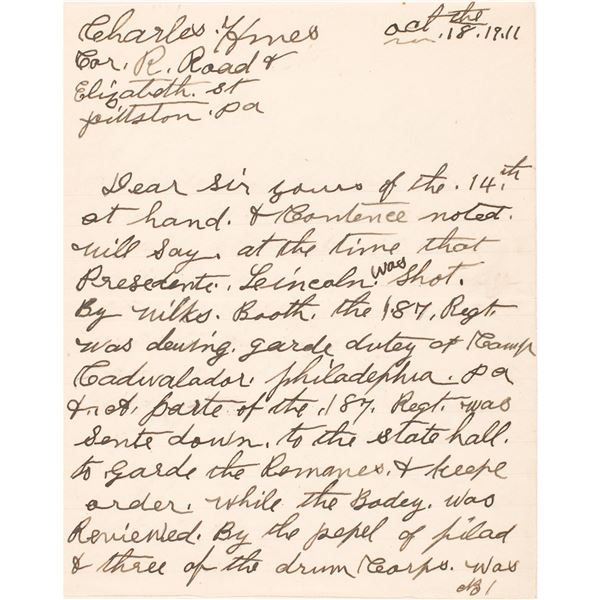 Charles Hines
oct the 18. 1911
Cor. R. Road &
Elizabeth. st
pittston. pa
Dear Sir yours of the. 14.th
at hand. & Contence noted.
will say. at the time that
Presedente. Leincoln. was shot.
By wilks. Booth. the 187. Regt.
was dewing. garde dutey at Camp
Cadwalador. philadephia. pa
& A. parte of the. 187. Regt. was
sente down. to the state hall.
to garde the Remanes. & keepe
order. while the Bodey. was
Reviewed. By the pepel of pilad
& three of the drum Corps. was